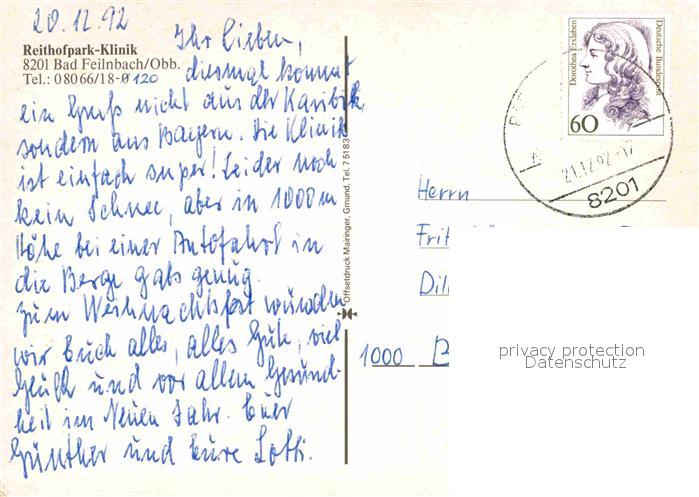 20.12.92
Reithofpark-Klinik
8201 Bad Feilnbach/Obb.
Tel.: 08066/18-0120
Ihr Lieben,
diesmal kommt
ein Gruß nicht aus der Karibik
sondern aus Bayern. Die Klinik
ist einfach super! Leider noch
kein Schnee, aber in 1000 m
Höhe bei einer Autofahrt in
die Berge gabs genug.
Zum Weihnachtsfest wünschen
wir Euch alles, alles Gute, viel
Glück und vor allem Gesund-
heit im Neuen Jahr. Euer
Günther und Eure Lotti.
Offsetdruck Mairinger, Gmund, Tel. 75183
Dorothea Erxleben
Deutsche Bundespost
60
21.12.92-17
8201
Herrn
Frit
Dil
1000 B
privacy protection
Datenschutz